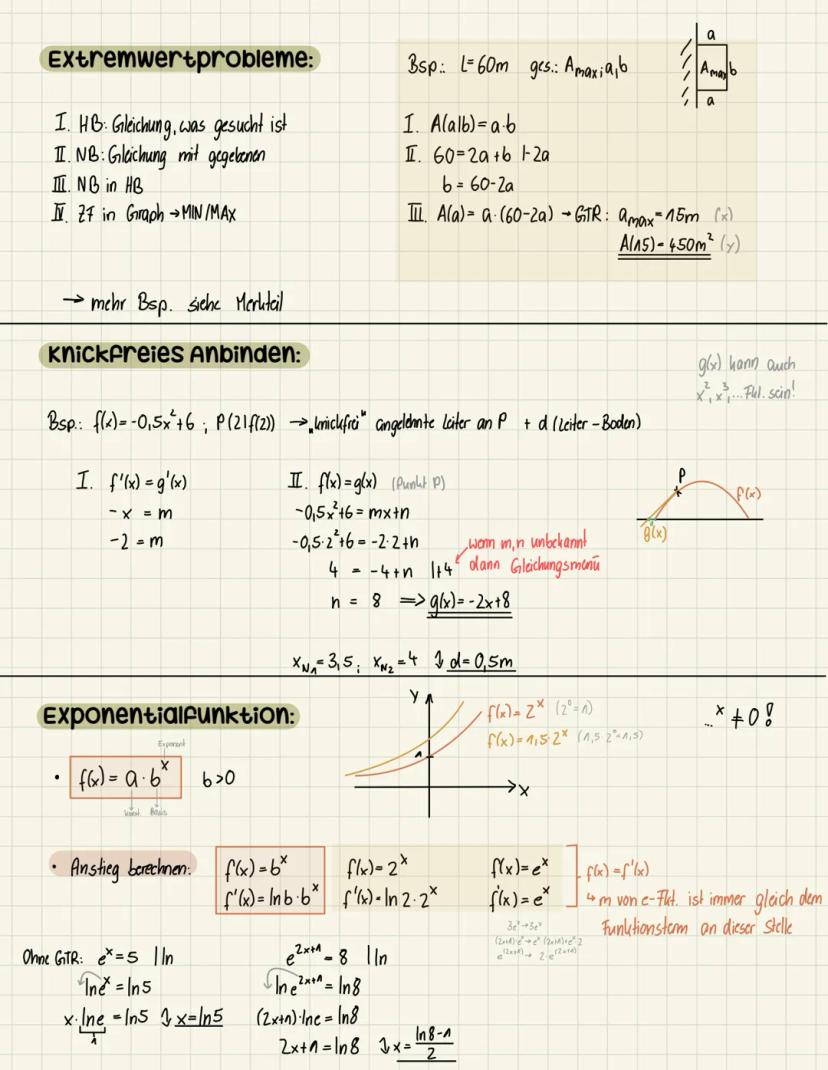 Extremwertprobleme:
I. HB: Gleichung, was gesucht ist
II. NB: Gleichung mit gegebenen
III. NB in HB
IV. ZF in Graph → MIN/MAX
→ mehr Bsp. siehe Merkteil
Bsp.: L=60m ges.: Amax; a, b
a
Amax b
a
I. A(a|b) = a·b
II. 60 = 2a + b |-2a
b = 60-2a
III. A(a) = a·(60-2a) → GTR: amax = 15m (x)
A(15) = 450m² (y)
Knickfreies Anbinden:
g(x) kann auch
x², x³, ... Fkt. sein!
Bsp.: f(x) = -0,5x²+6 ; P(2|f(2)) → "knickfrei" angelehnte Leiter an P + d (Leiter-Boden)
I. f'(x) = g'(x)
-x = m
-2 = m
II. f(x) = g(x) (Punkt P)
-0,5x²+6 = mx+n
-0,5·2²+6 = -2·2+n
4 = -4+n |+4
wenn m,n unbekannt
dann Gleichungsmenü
n = 8 => g(x) = -2x+8
P
f(x)
g(x)
xN1 = 3,5 ; xN2 = 4 ↯ d = 0,5m
Exponentialfunktion:
Exponent
• f(x) = a·b^x b>0
konst. Basis
y
1
x
f(x) = 2^x (2^0 = 1)
f(x) = 1,5·2^x (1,5·2^0 = 1,5)
...^x ≠ 0!
• Anstieg berechnen:
f(x) = b^x
f'(x) = ln b·b^x
f(x) = 2^x
f'(x) = ln 2·2^x
f(x) = e^x
f'(x) = e^x
f(x) = f'(x)
↳ m von e-Fkt. ist immer gleich dem
Funktionsterm an dieser Stelle
3e^x → 3e^x
(2x+1)·e^x → e^x(2x+1)+e^x·2
e^(2x+1) → 2·e^(2x+1)
Ohne GTR: e^x = 5 |ln
ln e^x = ln 5
x·ln e = ln 5 ↯ x = ln 5
1
e^2x+1 = 8 |ln
ln e^2x+1 = ln 8
(2x+1)·ln e = ln 8
2x+1 = ln 8 ↯ x = ln 8-1 / 2